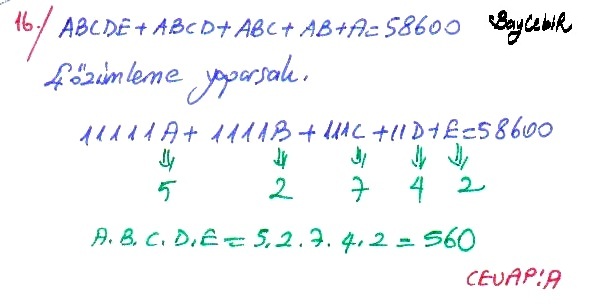 16./ ABCDE+ABCD+ABC+AB+A=58600 BayCebir
Çözümleme yaparsak.
11111A+1111B+111C+11D+E=58600
⇓ ⇓ ⇓ ⇓ ⇓
5 2 7 4 2
A.B.C.D.E=5.2.7.4.2=560
CEVAP:A